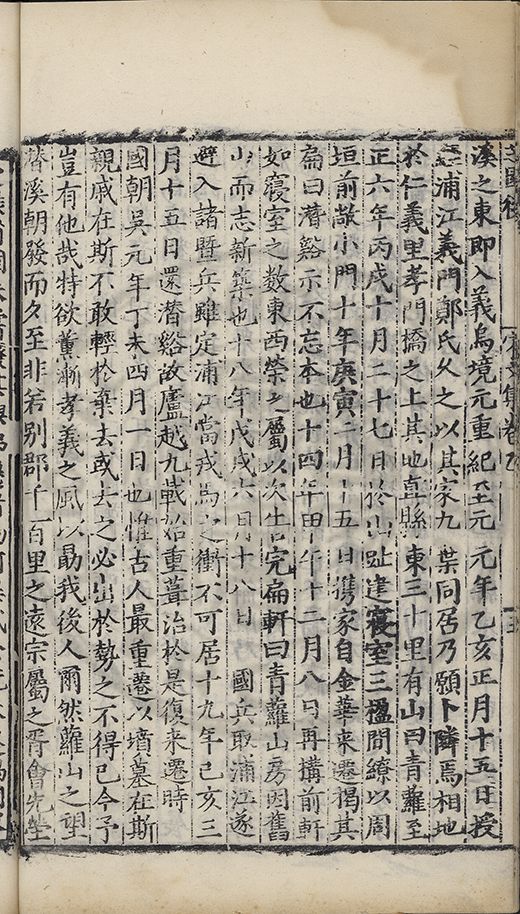 溪之東即入義烏境元重紀至元 元年乙亥正月十五日授
經浦江義門鄭氏久之以其家九 葉同居乃願卜隣焉相地
於仁義里孝門橋之上其地直縣 東三十里有山曰青蘿至
正六年丙戌十月二十七日於山趾建寢室三楹間繚以周
垣前敞小門十年庚寅二月十五日携家自金華来遷揭其
扁曰潛谿示不忘本也十四年甲午十二月八日再搆前軒
如寢室之数東西榮之屬以次告完扁軒曰青蘿山房因舊
山而志新築也十八年戊戌六月十八日 國兵取浦江遂
避入諸暨兵雖定浦江當戎馬之衝不可居十九年己亥三
月十五日還潛谿故廬越九載始重葺治於是復来遷時
國朝吳元年丁未四月一日也惟古人最重遷以墳墓在斯
親戚在斯不敢輕於棄去或去之必出於勢之不得已今予
豈有他哉特欲薰漸孝義之風以勗我後人爾然蘿山之望
潛溪朝發而夕至非若别郡千百里之遠宗屬之胥會先塋